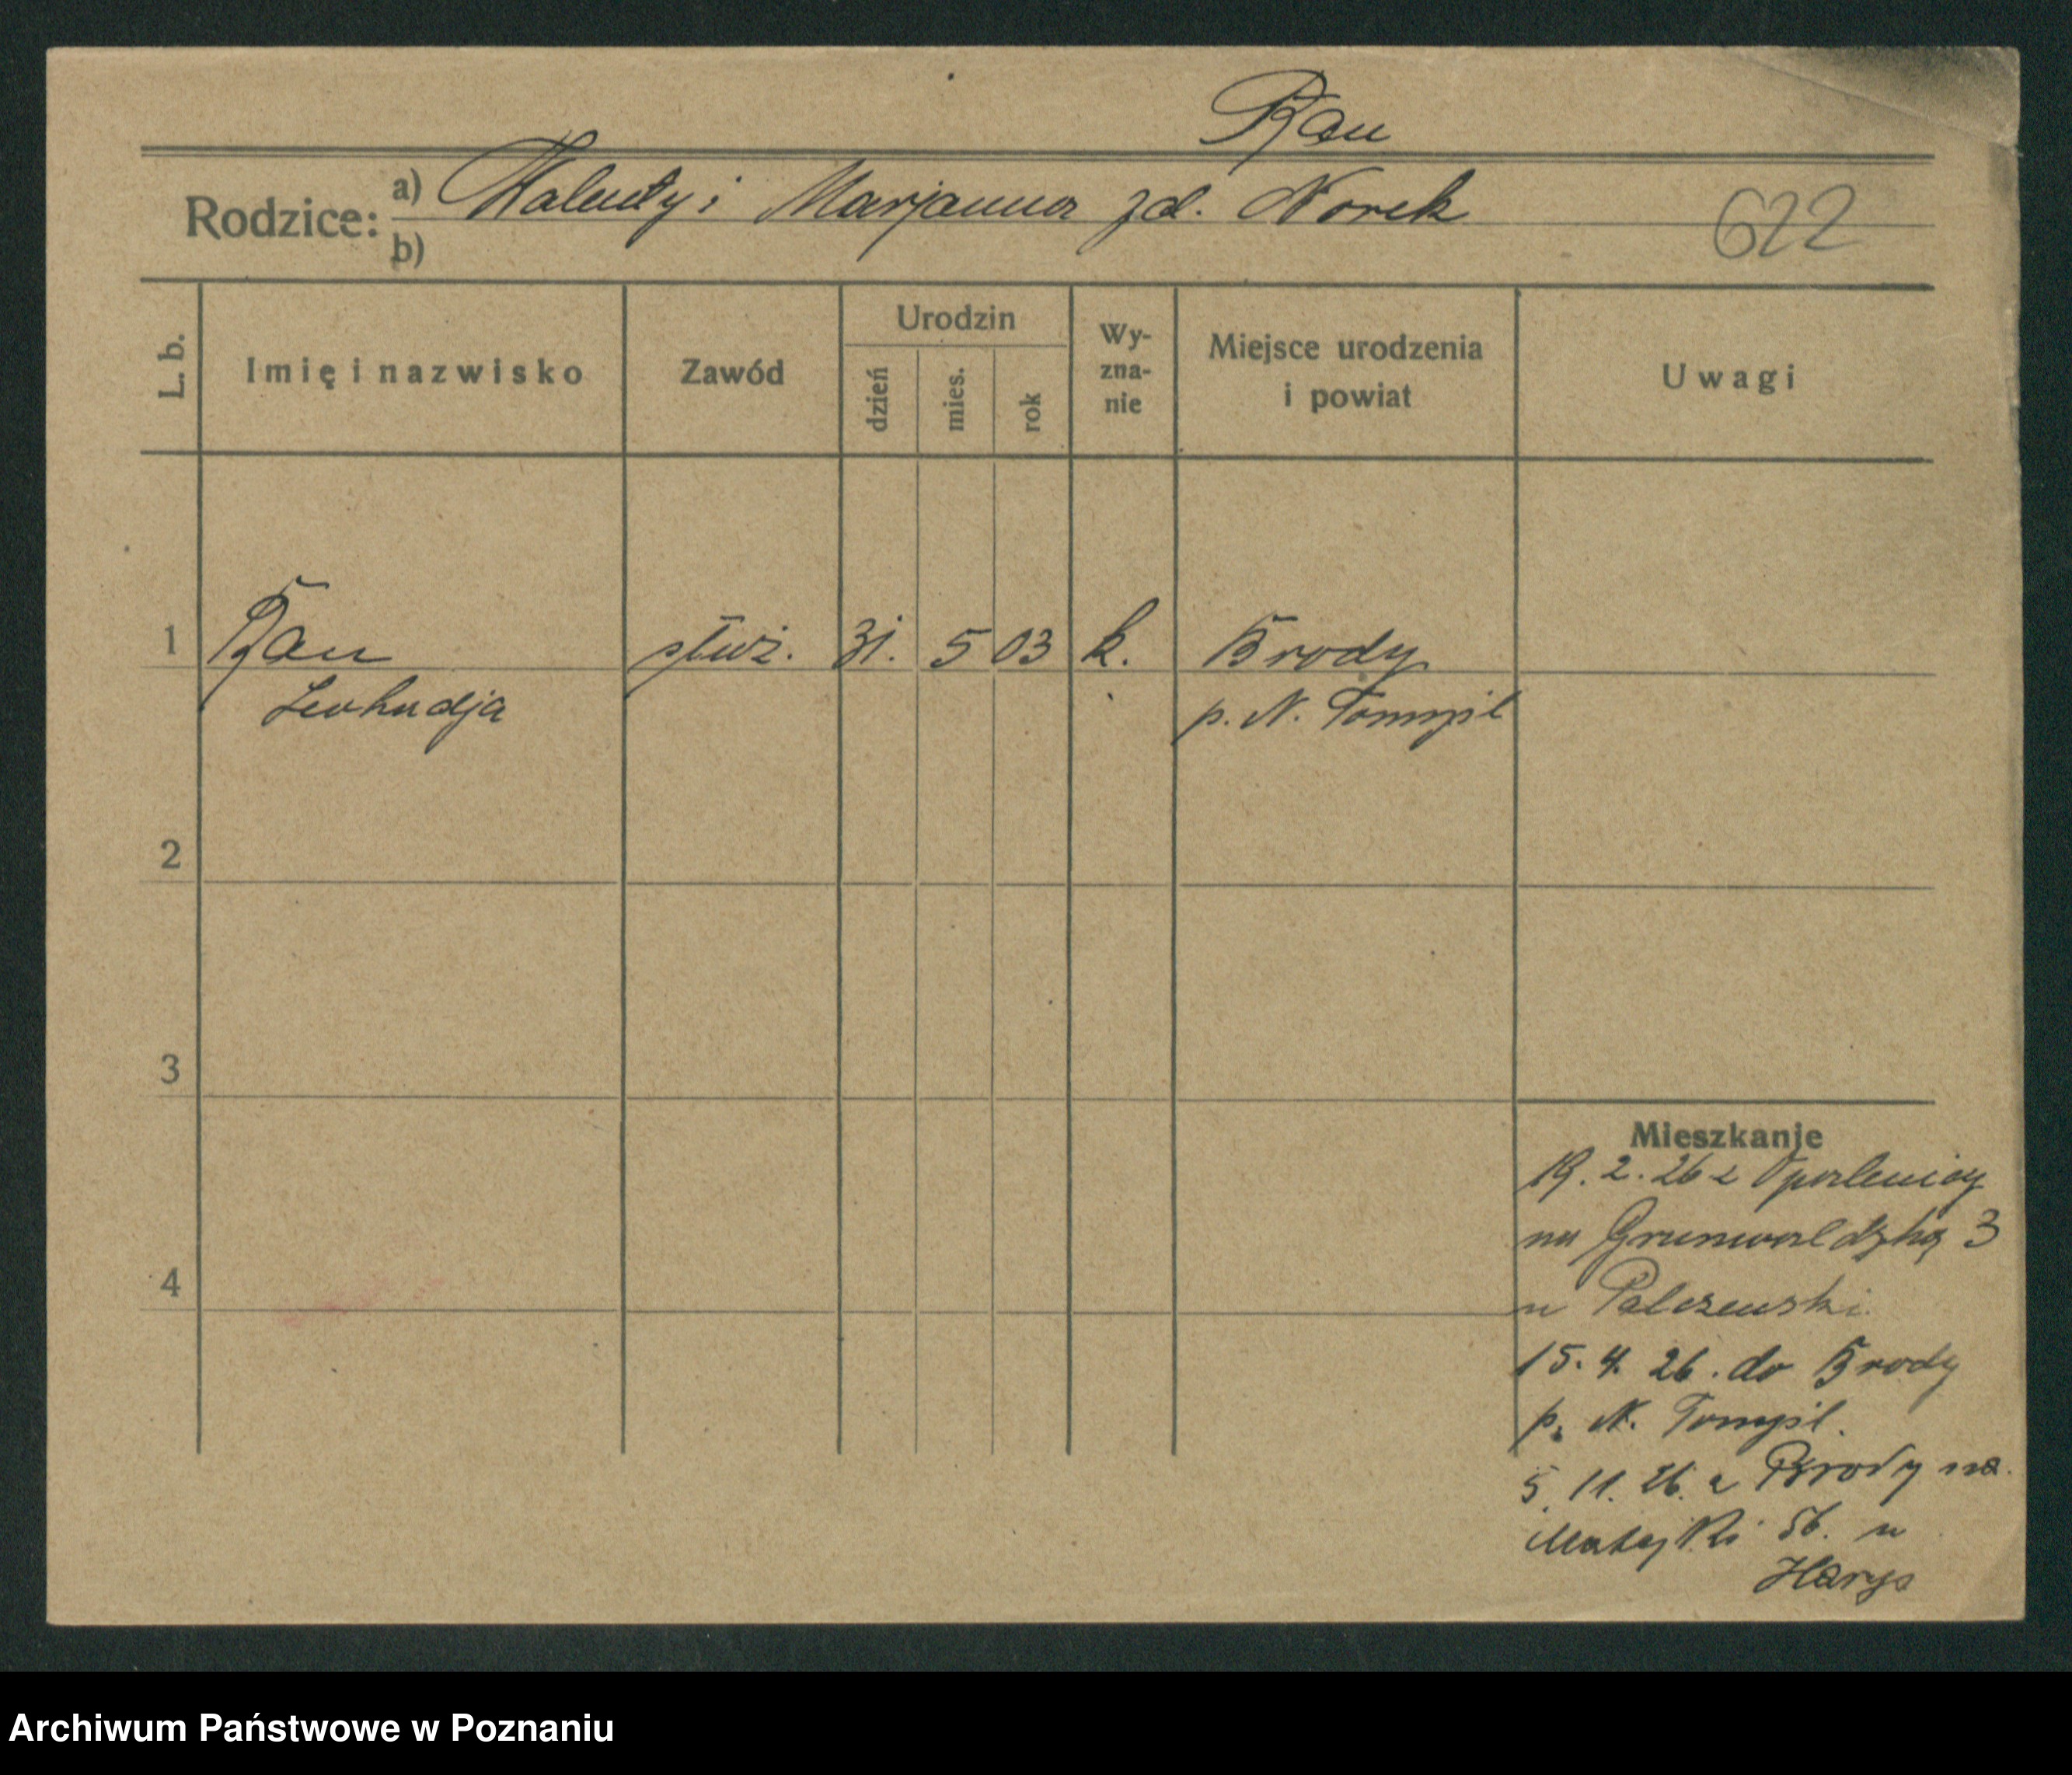 Rau
Rodzice: a) Walenty i Marjanna zd. Norek
b)
622
L. b.
Imię i nazwisko
Zawód
Urodzin
dzień
mies.
rok
Wy-
zna-
nie
Miejsce urodzenia
i powiat
Uwagi
1 Rau służ. 31. 5 03 k. Brody
Leokadja p. N. Tomyśl
2
3
4
Mieszkanie
19. 2. 26 z Opalenicy
na Grunwaldzką 3
u
15. 4. 26. do Brody
p. N. Tomyśl.
5. 11. 26. z Brody na
Matejki 56. u
Archiwum Państwowe w Poznaniu